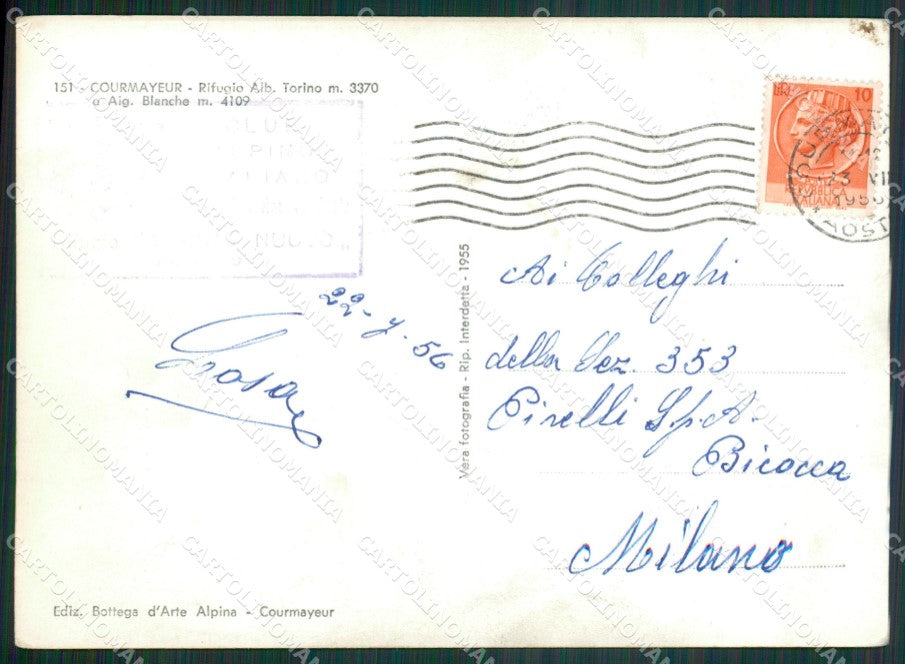 151 - COURMAYEUR - Rifugio Alb. Torino m. 3370
e Aig. Blanche m. 4109
CLUB
ALPINO
ITALIANO
LIRE 10
REPUBBLICA
ITALIANA
AOSTA
22-7-56
Vera fotografia - Rip. Interdetta - 1955
Ai Colleghi
della Sez. 353
Pirelli S.p.A.
Bicocca
Milano
Ediz. Bottega d'Arte Alpina - Courmayeur
CARTOLINOMANIA